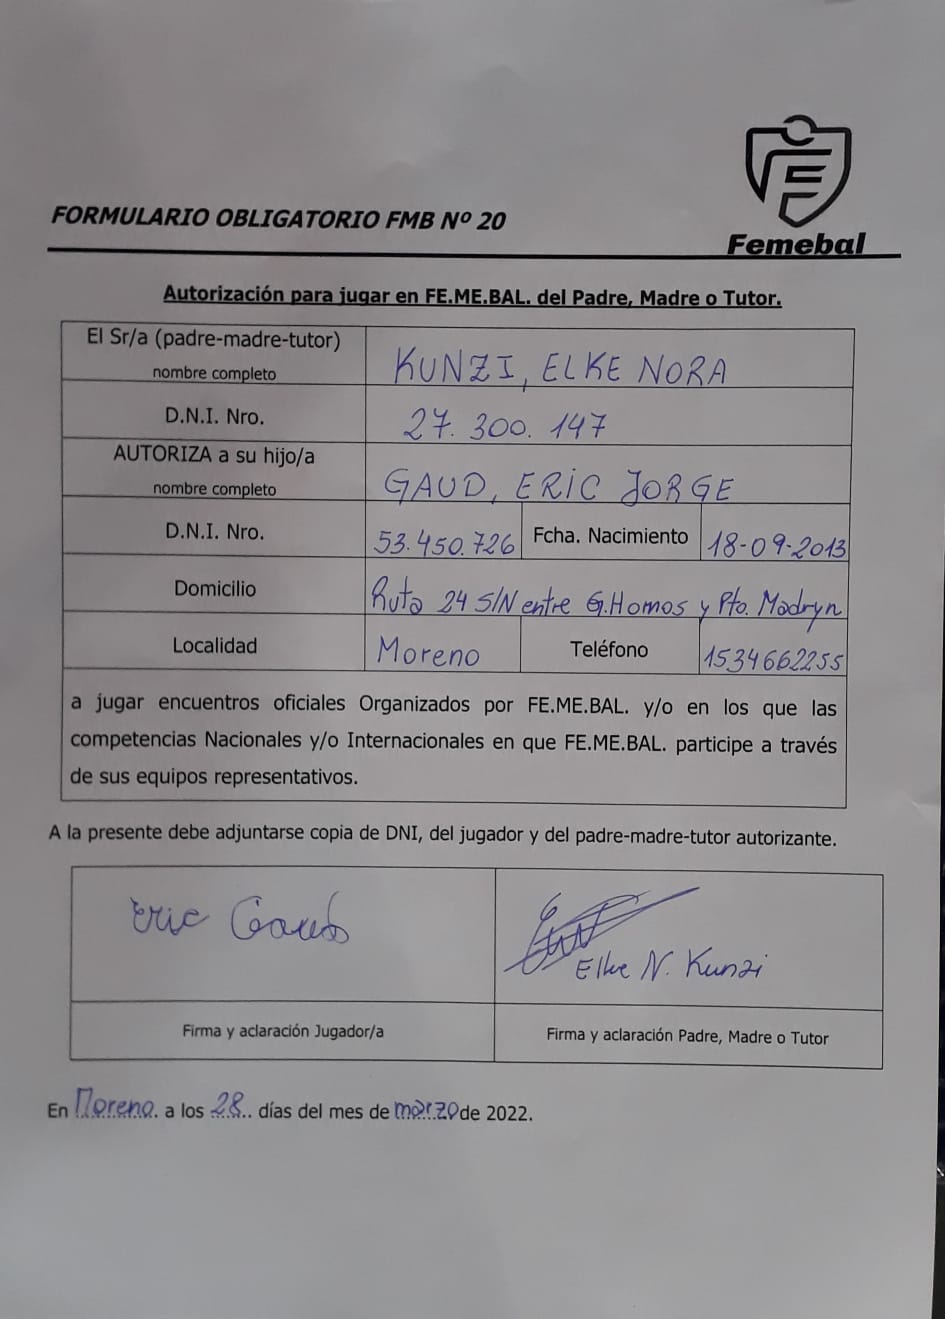 FORMULARIO OBLIGATORIO FMB Nº 20
Femebal
Autorización para jugar en FE.ME.BAL. del Padre, Madre o Tutor.
El Sr/a (padre-madre-tutor)
nombre completo
KUNZI, ELKE NORA
D.N.I. Nro.
27.300.147
AUTORIZA a su hijo/a
nombre completo
GAUD, ERIC JORGE
D.N.I. Nro.
53.450.726
Fcha. Nacimiento
18-09-2013
Domicilio
Ruta 24 S/N entre G.Hornos y Pto. Madryn
Localidad
Moreno
Teléfono
1534662255
a jugar encuentros oficiales Organizados por FE.ME.BAL. y/o en los que las
competencias Nacionales y/o Internacionales en que FE.ME.BAL. participe a través
de sus equipos representativos.
A la presente debe adjuntarse copia de DNI, del jugador y del padre-madre-tutor autorizante.
Eric Gaud
Elke N. Kunzi
Firma y aclaración Jugador/a
Firma y aclaración Padre, Madre o Tutor
En Moreno. a los 28.. días del mes de marzo de 2022.